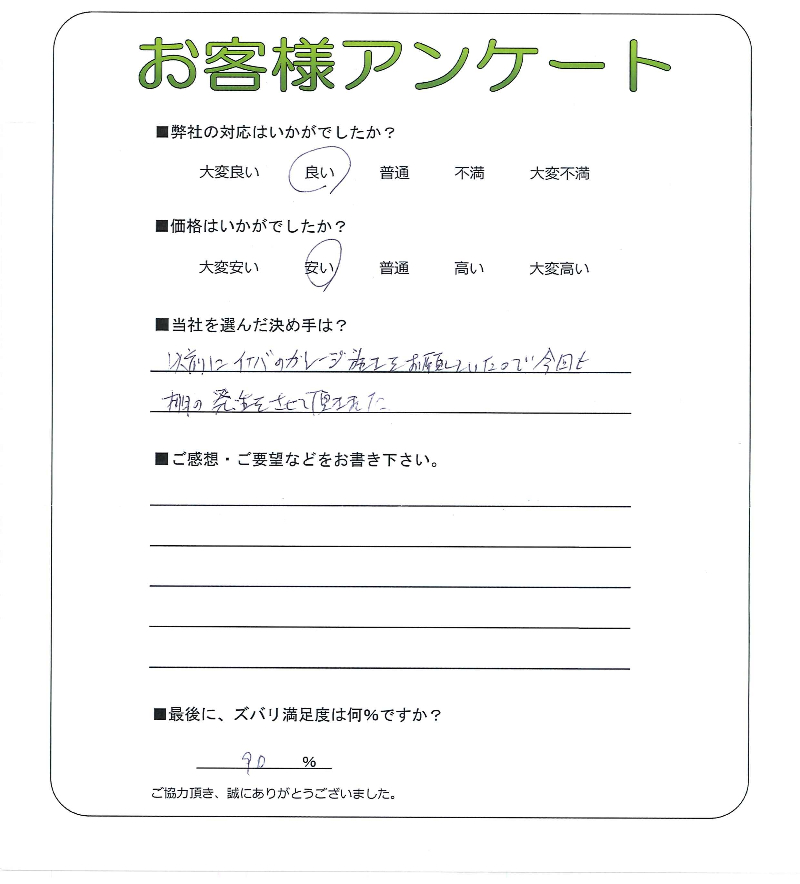 お客様アンケート
■弊社の対応はいかがでしたか？
大変良い 良い 普通 不満 大変不満
■価格はいかがでしたか？
大変安い 安い 普通 高い 大変高い
■当社を選んだ決め手は？
以前にイナバのガレージ施工をお願いしていたので今回も
棚の発注をさせて頂きました
■ご感想・ご要望などをお書き下さい。
■最後に、ズバリ満足度は何%ですか？
90 %
ご協力頂き、誠にありがとうございました。